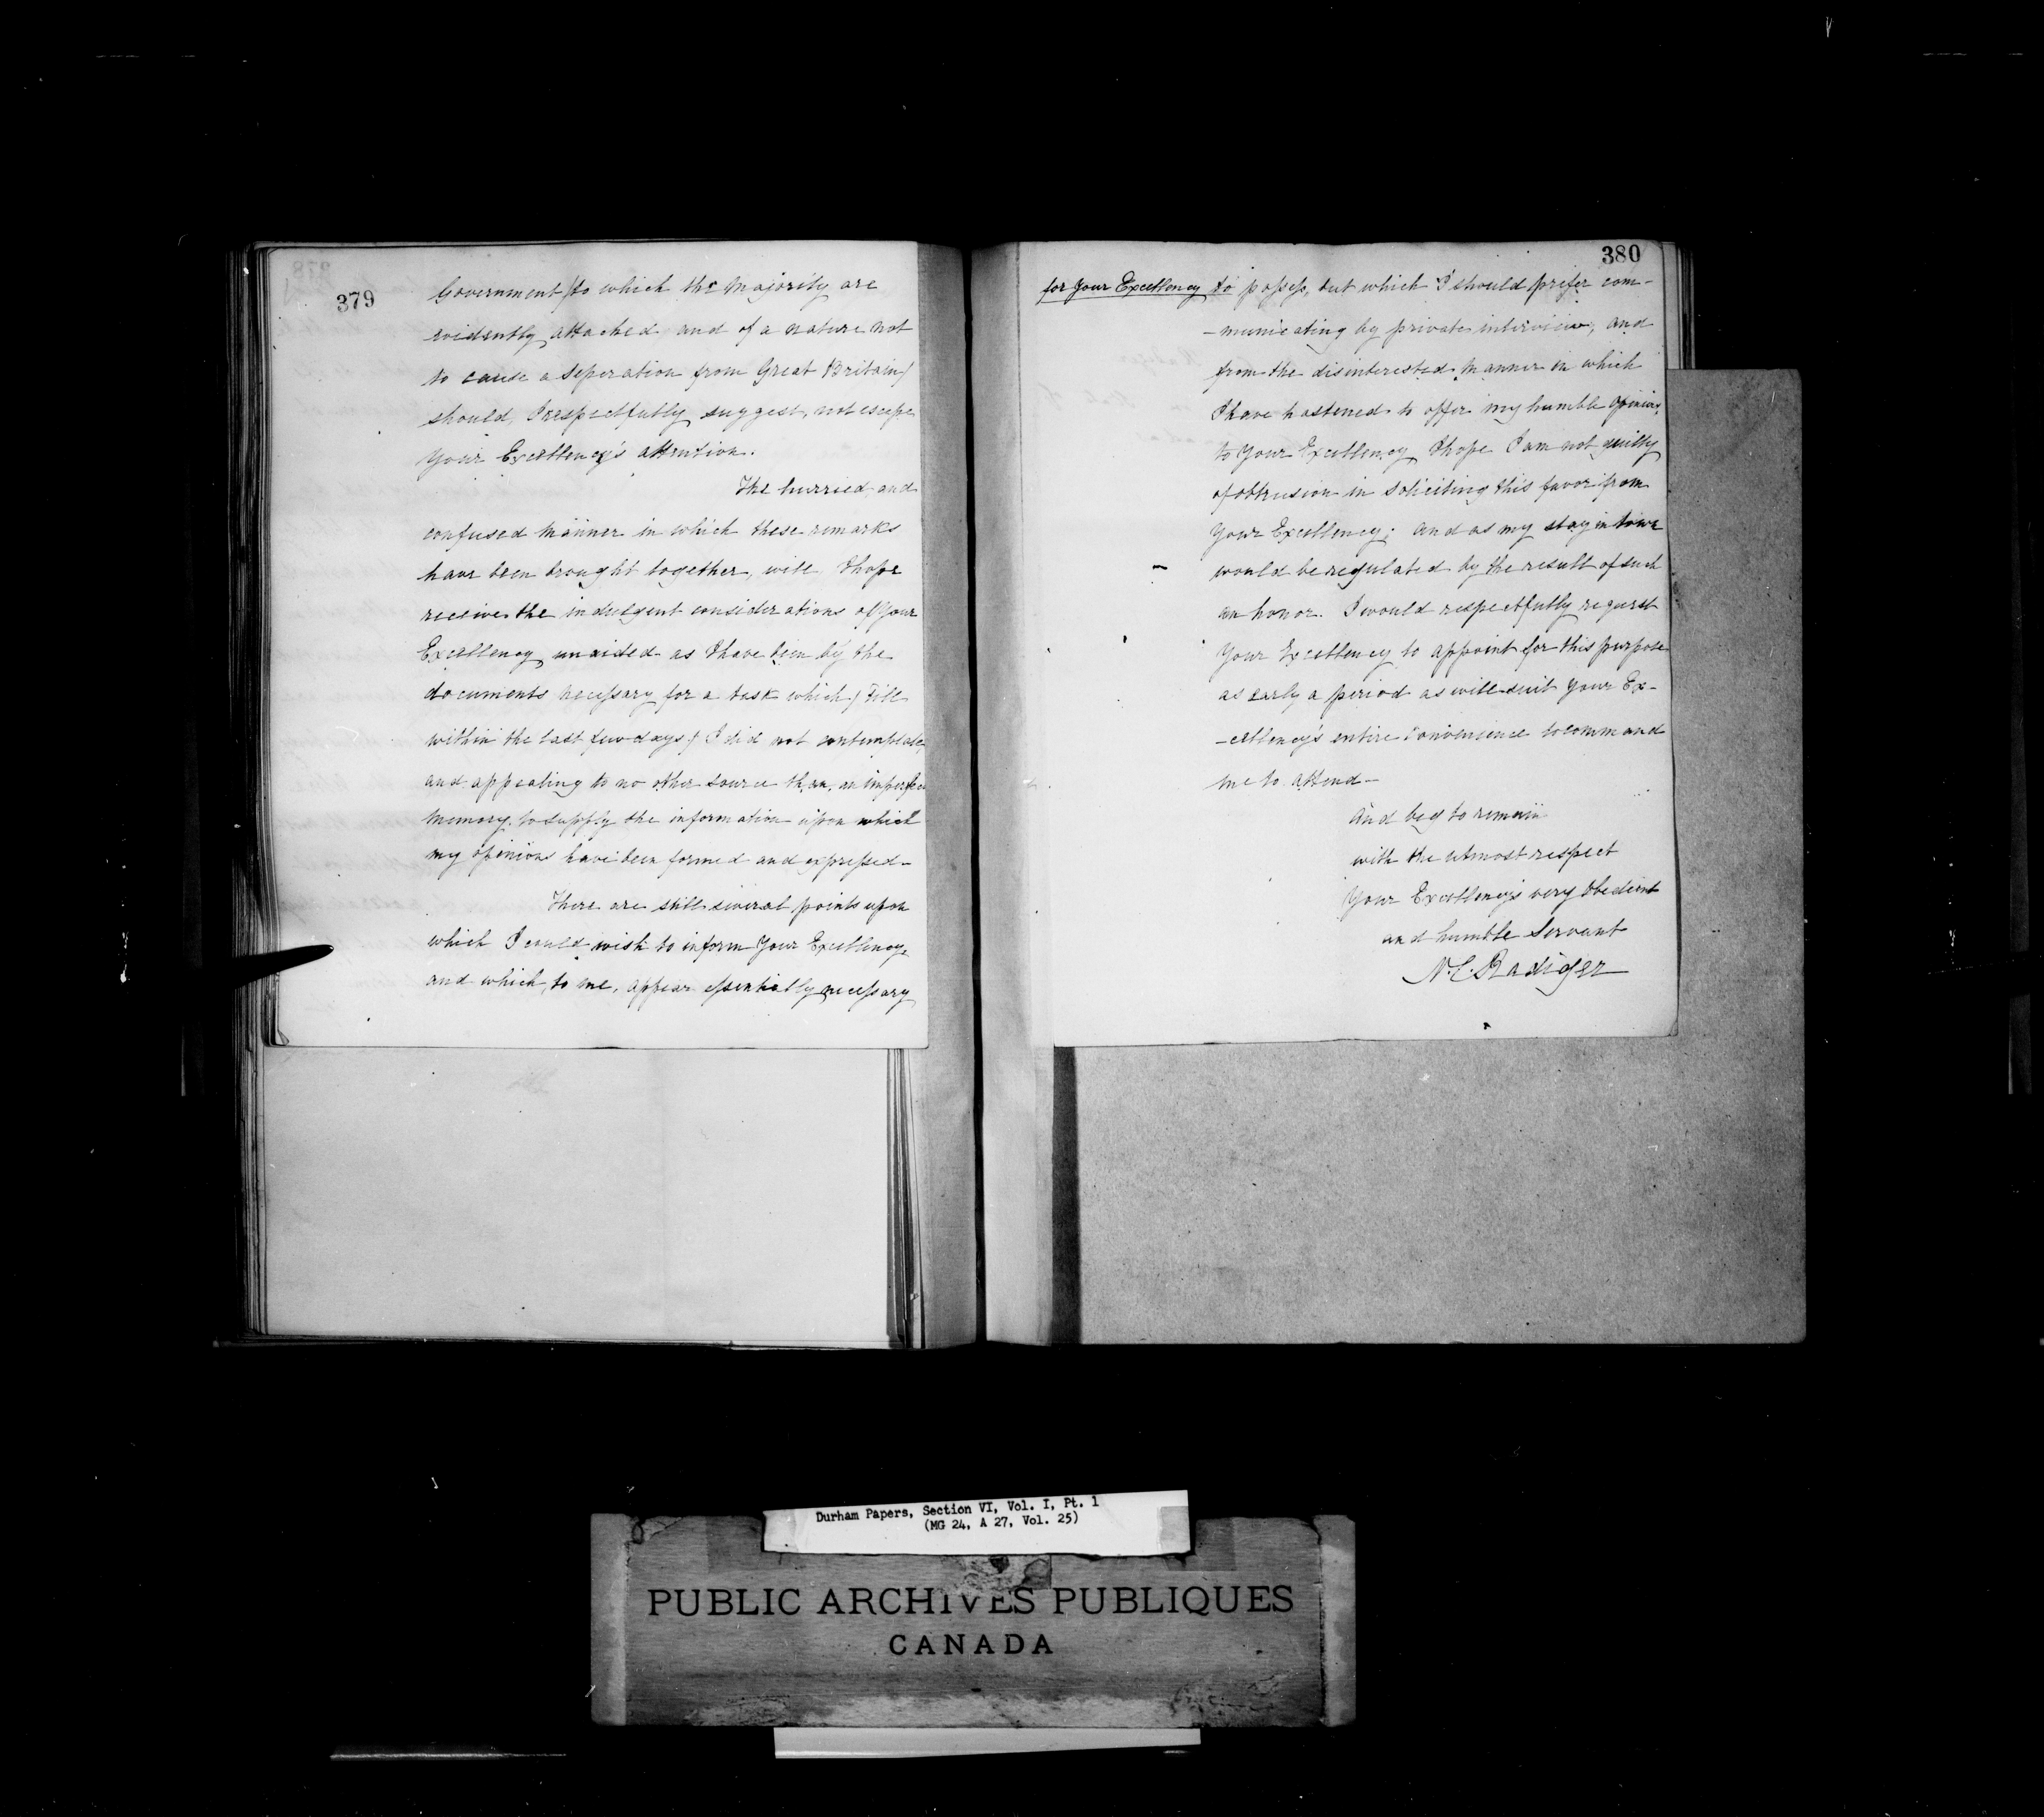 379
Government (to which the Majority are
evidently attached and of a nature not
to cause a Seperation from Great Britain)
should, I respectfully suggest, not escape
Your Excellency's attention.
The hurried and
confused Manner in which these remarks
have been brought together, will, I hope
receive the indulgent considerations of Your
Excellency unaided as I have been by the
documents necessary for a task which (till
within the last few days) I did not contemplate,
and appealing to no other source than an imperfect
Memory to supply the information upon which
my opinions have been formed and expressed—
There are still several points upon
which I could wish to inform Your Excellency
and which, to me, appear essentially necessary
380
for Your Excellency to possess, but which I should prefer com-
-municating by private interview, and
from the disinterested Manner in which
I have hastened to offer my humble opinions
to Your Excellency I hope I am not guilty
of obtrusion in Soliciting this favor from
Your Excellency; and as my stay in town
would be regulated by the result of such
an honor. I would respectfully request
Your Excellency to appoint for this purpose
as early a period as will suit Your Ex-
-cellency's entire Convenience to command
me to attend—
And beg to remain
with the utmost respect
Your Excellency's very Obedient
and humble Servant
N. C. Radiger
Durham Papers, Section VI, Vol. I, Pt. 1
(MG 24, A 27, Vol. 25)
PUBLIC ARCHIVES PUBLIQUES
CANADA